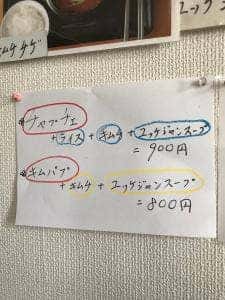 キムチチゲ
ユッケジ
チャプチェ
+ライス + キムチ + ユッケジャンスープ
= 900円
キムパプ
+キムチ + ユッケジャンスープ
= 800円